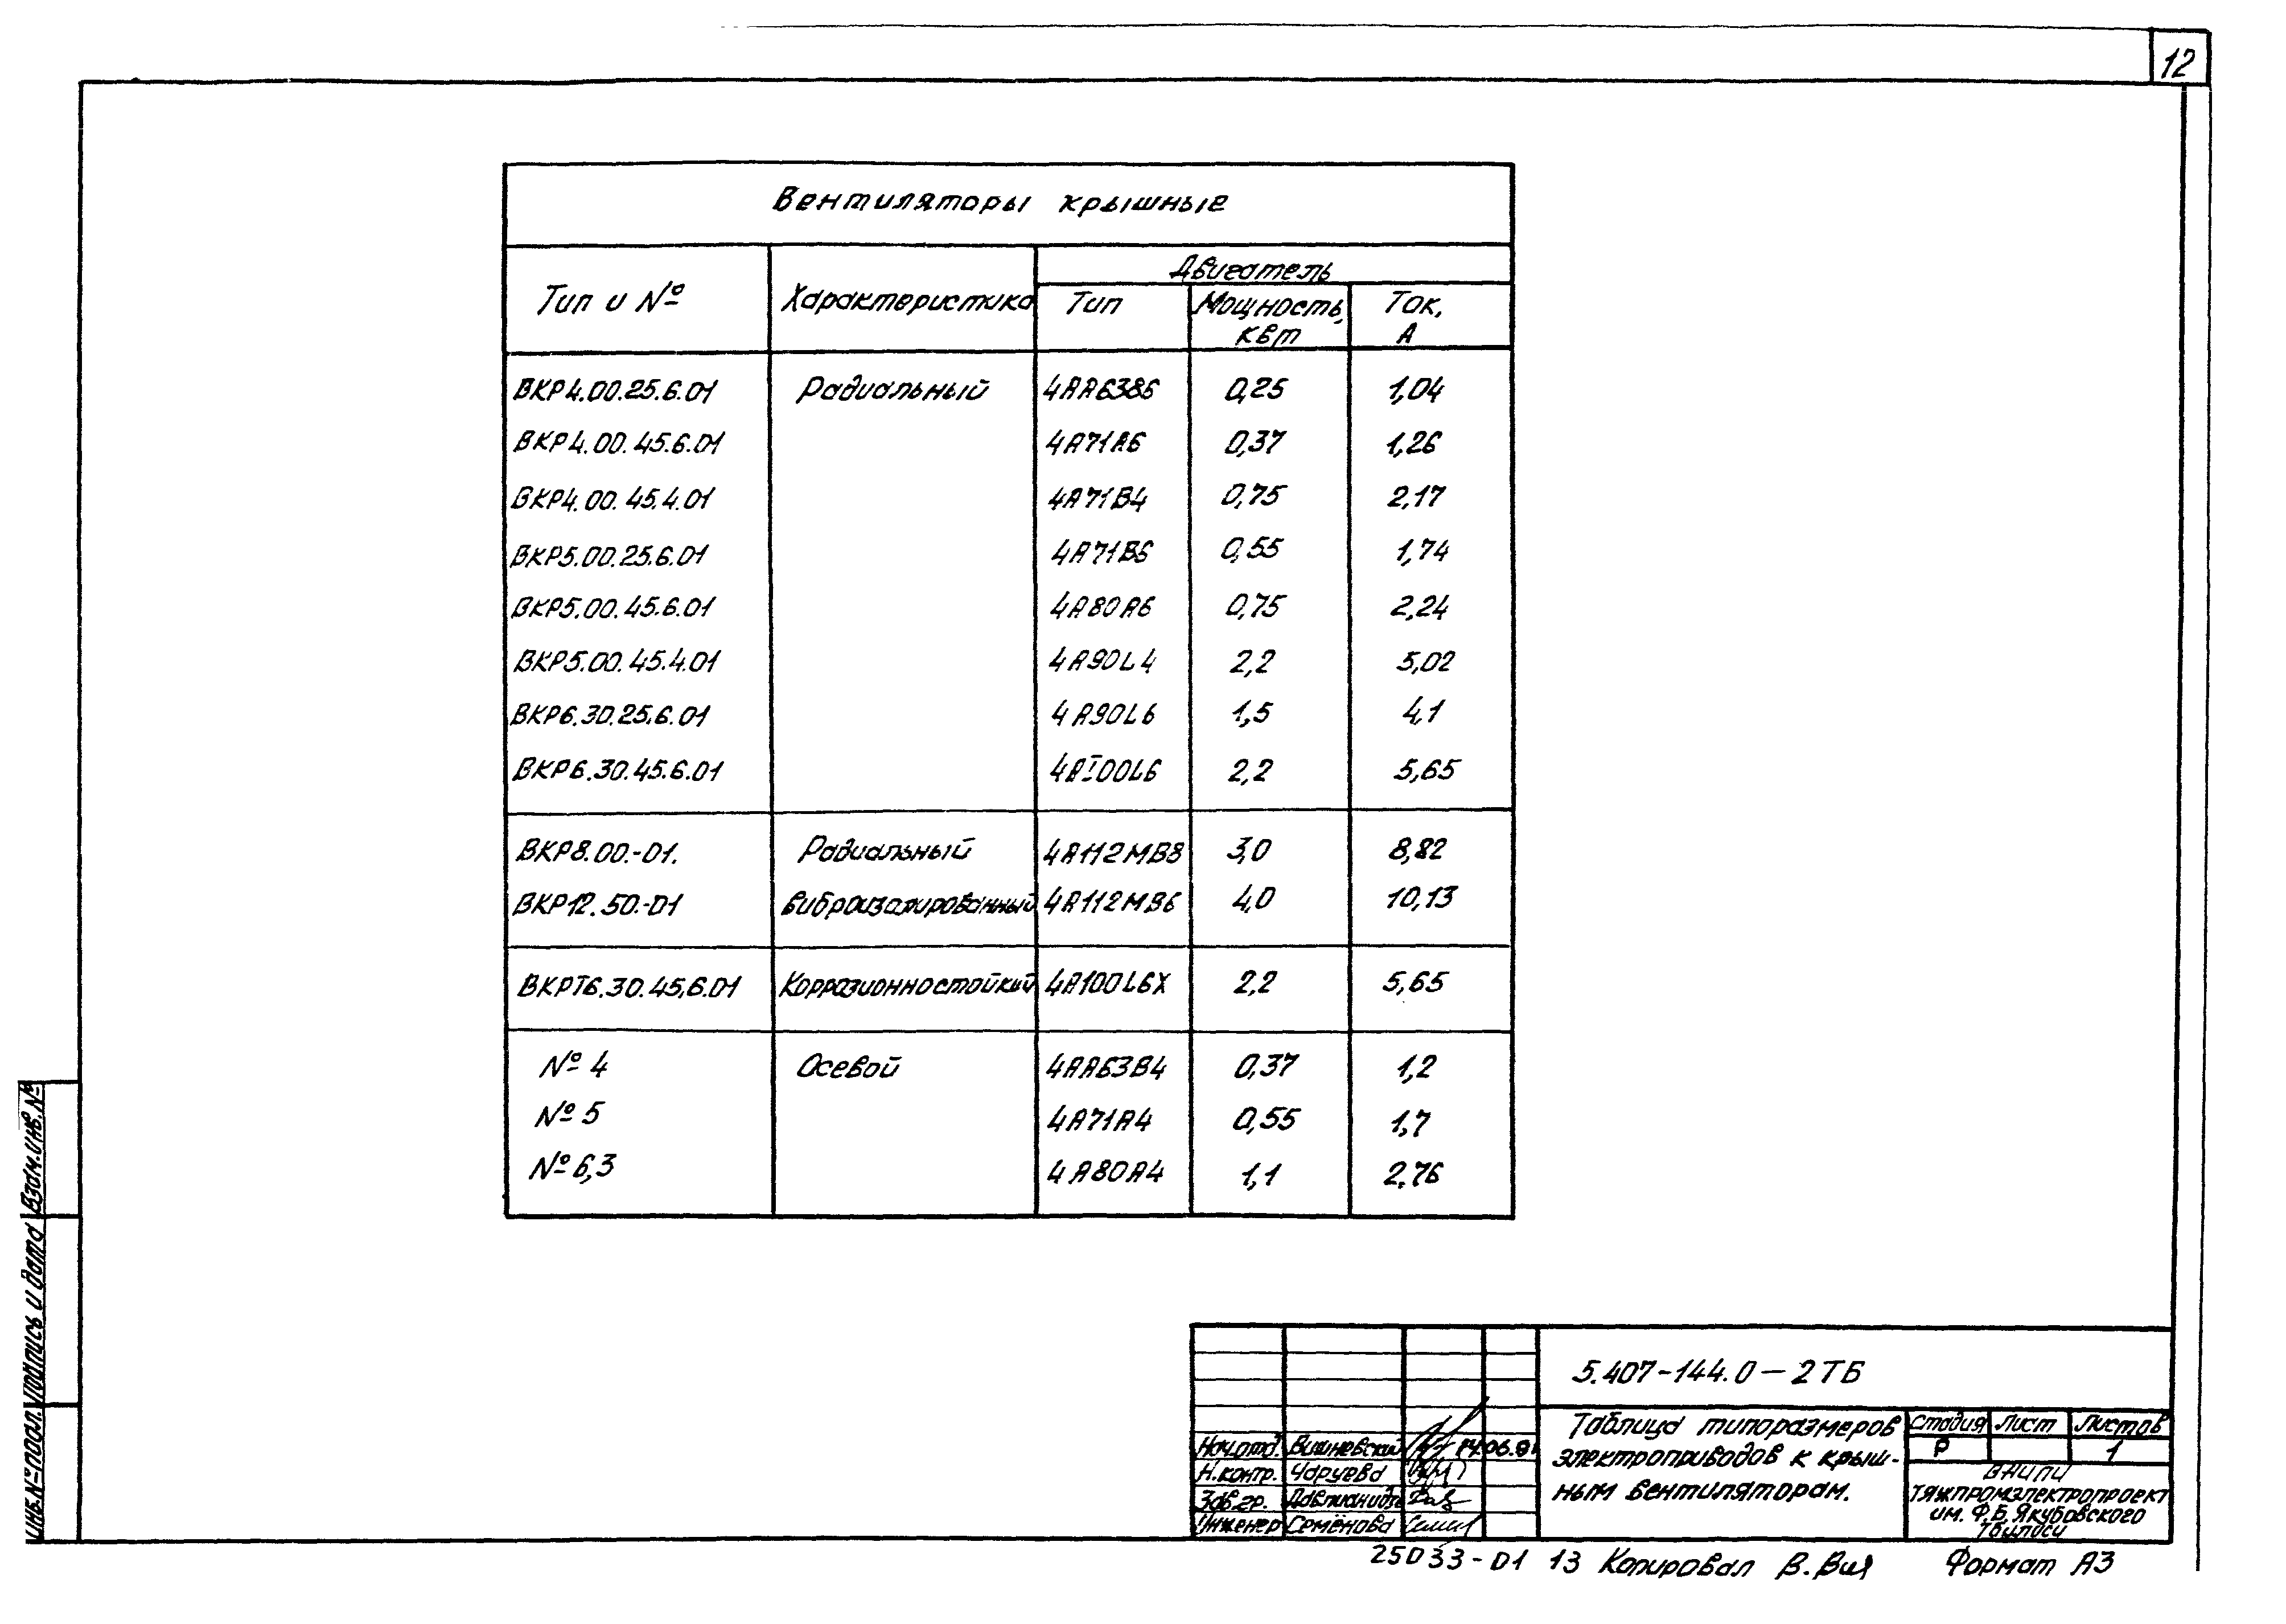 12
Вентиляторы крышные
Тип и № Характеристика Двигатель
Тип Мощность, квт Ток, А
ВКР4.00.25.6.01 Радиальный 4АА63В6 0,25 1,04
ВКР4.00.45.6.01 4А71А6 0,37 1,26
ВКР4.00.45.4.01 4А71В4 0,75 2,17
ВКР5.00.25.6.01 4А71В6 0,55 1,74
ВКР5.00.45.6.01 4А80А6 0,75 2,24
ВКР5.00.45.4.01 4А90L4 2,2 5,02
ВКР6.30.25.6.01 4А90L6 1,5 4,1
ВКР6.30.45.6.01 4АI00L6 2,2 5,65
ВКР8.00.-01. Радиальный 4А112МВ8 3,0 8,82
ВКР12.50.-01 виброизолированный 4А112МВ6 4,0 10,13
ВКРТ6.30.45.6.01 Коррозионностойкий 4А100L6Х 2,2 5,65
№ 4 Осевой 4АА63В4 0,37 1,2
№ 5 4А71А4 0,55 1,7
№ 6,3 4А80А4 1,1 2,76
Взам. инв. №
Подпись и дата
Инв. № подл.
5.407-144.0-2ТБ
Нач.отд. Вишневский 14.06.91
Н.контр. Чаруева
Зав.гр. Давлианидзе
Инженер Семёнова
Таблица типоразмеров
электроприводов к крыш-
ным вентиляторам.
Стадия Лист Листов
Р 1
ВНИПИ
Тяжпромэлектропроект
им. Ф.Б. Якубовского
Тбилиси
25033-01 13 Копировал В. Вия Формат А3